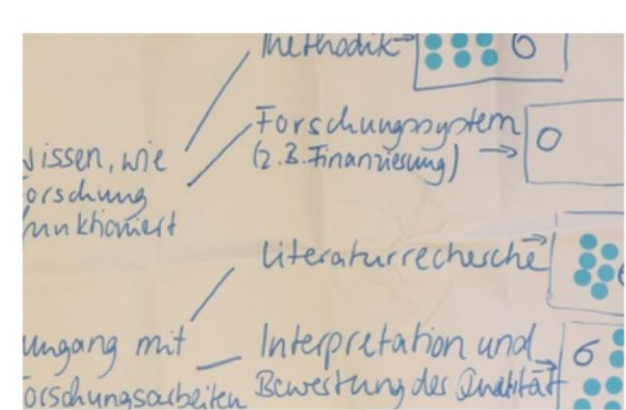 Methodik → 6
Forschungssystem
(z.B. Finanzierung) → 0
wissen, wie
Forschung
funktioniert
Literaturrecherche →
umgang mit
Forschungsarbeiten
Interpretation und
Bewertung der Qualität → 6